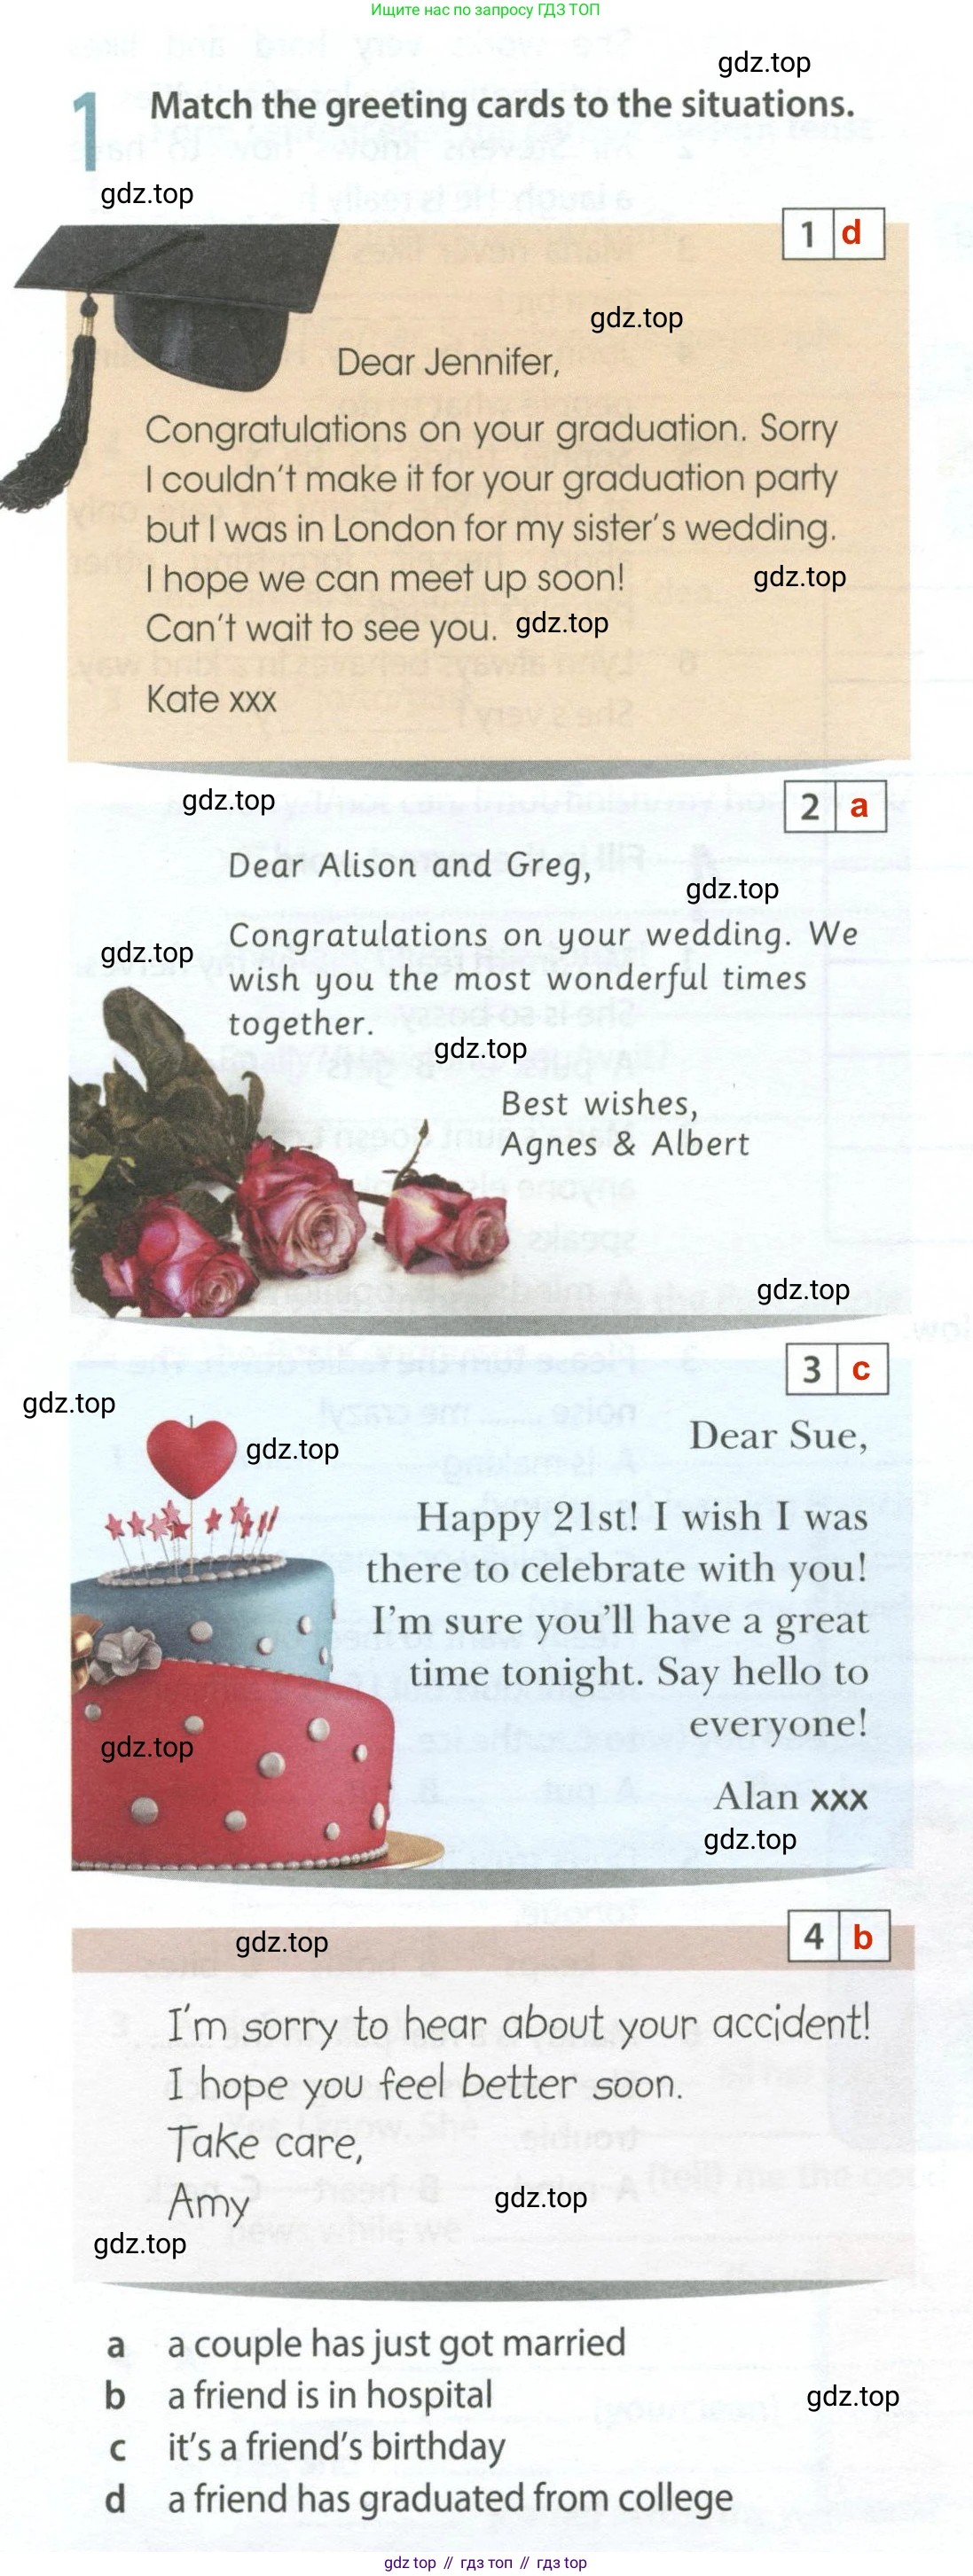 Ищите нас по запросу ГДЗ ТОП
gdz.top
1 Match the greeting cards to the situations.
gdz.top
1 d
gdz.top
Dear Jennifer,
Congratulations on your graduation. Sorry
I couldn't make it for your graduation party
but I was in London for my sister's wedding.
I hope we can meet up soon!
gdz.top
Can't wait to see you.
gdz.top
Kate xxx
gdz.top
2 a
Dear Alison and Greg,
gdz.top
Congratulations on your wedding. We
gdz.top
wish you the most wonderful times
together.
gdz.top
Best wishes,
Agnes & Albert
gdz.top
3 c
gdz.top
Dear Sue,
gdz.top
Happy 21st! I wish I was
there to celebrate with you!
I'm sure you'll have a great
time tonight. Say hello to
everyone!
gdz.top
Alan xxx
gdz.top
4 b
gdz.top
I'm sorry to hear about your accident!
I hope you feel better soon.
Take care,
Amy
gdz.top
gdz.top
a a couple has just got married
b a friend is in hospital
gdz.top
c it's a friend's birthday
d a friend has graduated from college
gdz top // гдз топ // гдз top